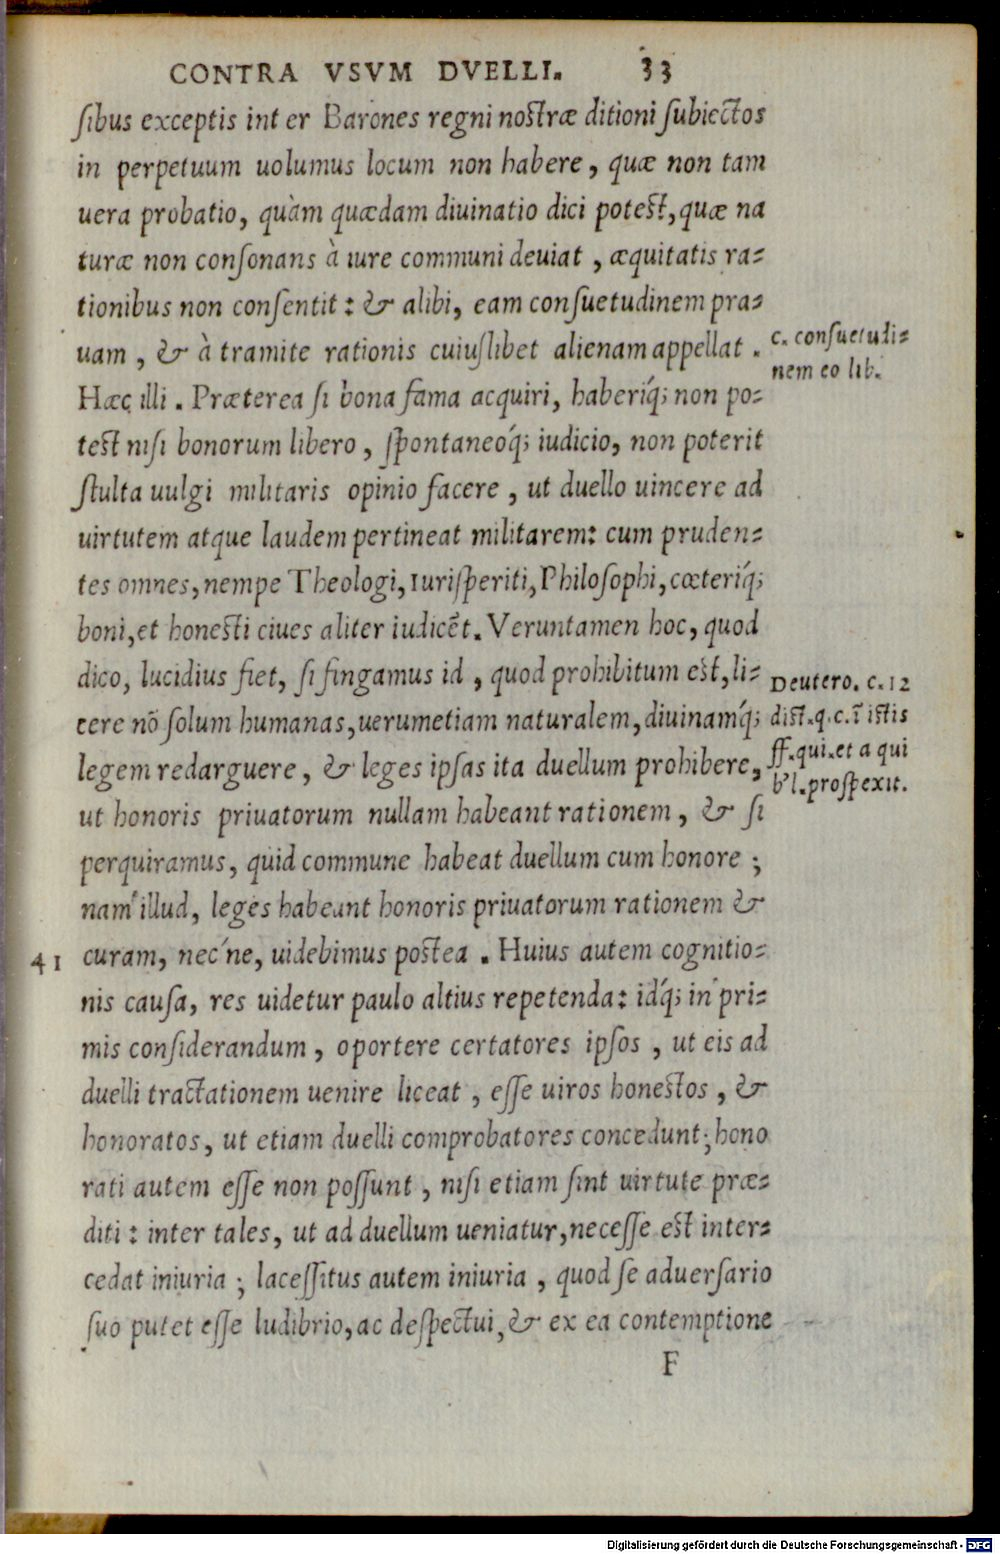 CONTRA VSVM DVELLI. 33
ſibus exceptis int er Barones regni noſtræ ditioni ſubiectos
in perpetuum uolumus locum non habere, quæ non tam
uera probatio, quàm quædam diuinatio dici poteſt, quæ na
turæ non conſonans à iure communi deuiat, æquitatis ra-
tionibus non conſentit: & alibi, eam conſuetudinem pra-
uam, & à tramite rationis cuiuſlibet alienam appellat.
c. conſuetudi-
nem eo lib.
Hæc illi. Præterea ſi bona fama acquiri, haberíq; non po-
teſt niſi bonorum libero, ſpontaneóq; iudicio, non poterit
ſtulta uulgi militaris opinio facere, ut duello uincere ad
uirtutem atque laudem pertineat militarem: cum pruden-
tes omnes, nempe Theologi, Iuriſperiti, Philoſophi, cæteríq;
boni, et honeſti ciues aliter iudicẽt. Veruntamen hoc, quod
dico, lucidius fiet, ſi fingamus id, quod prohibitum eſt, li-
cere nõ ſolum humanas, uerumetiam naturalem, diuinamq́;
legem redarguere, & leges ipſas ita duellum prohibere,
Deutero. c. 12
diſt. q. c. ĩ iſtis
ff. qui. et a qui
b' l. proſpexit.
ut honoris priuatorum nullam habeant rationem, & ſi
perquiramus, quid commune habeat duellum cum honore;
nam illud, leges habeant honoris priuatorum rationem &
41 curam, nec'ne, uidebimus poſtea. Huius autem cognitio-
nis cauſa, res uidetur paulo altius repetenda: idq́; in pri-
mis conſiderandum, oportere certatores ipſos, ut eis ad
duelli tractationem uenire liceat, eſſe uiros honeſtos, &
honoratos, ut etiam duelli comprobatores concedunt; hono
rati autem eſſe non poſſunt, niſi etiam ſint uirtute præ-
diti: inter tales, ut ad duellum ueniatur, neceſſe eſt inter-
cedat iniuria; laceſſitus autem iniuria, quod ſe aduerſario
ſuo putet eſſe ludibrio, ac deſpectui, & ex ea contemptione
F
Digitalisierung gefördert durch die Deutsche Forschungsgemeinschaft - DFG